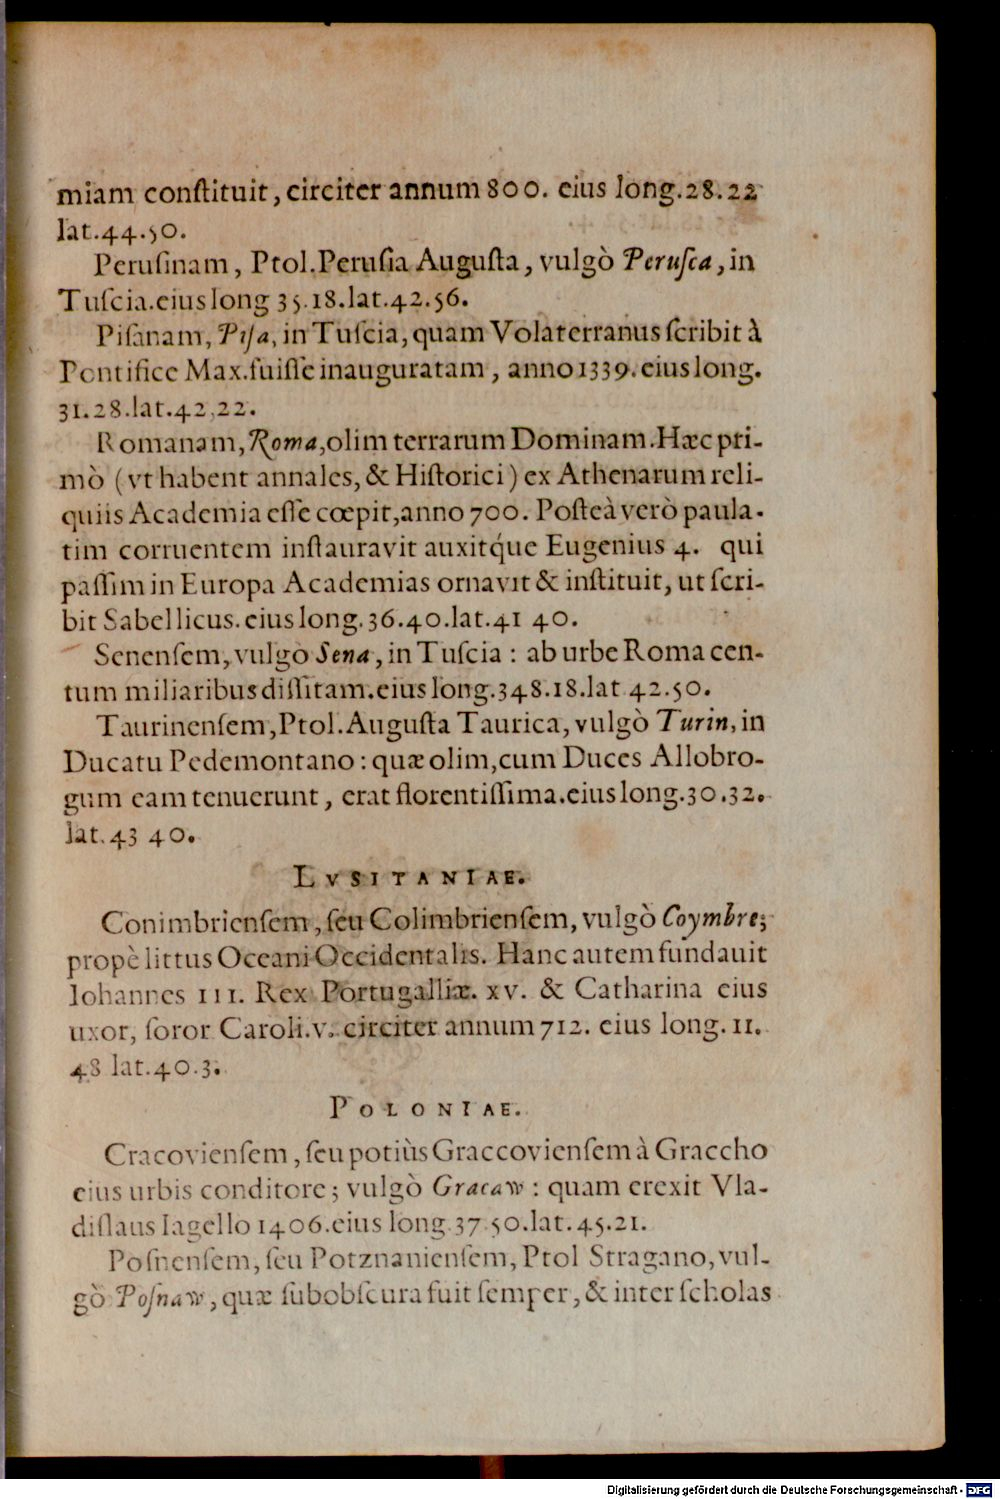 miam constituit, circiter annum 800. eius long. 28.22
lat. 44.50.
Perusinam, Ptol. Perusia Augusta, vulgò Perusca, in
Tuscia. eius long 35.18. lat. 42.56.
Pisanam, Pisa, in Tuscia, quam Volaterranus scribit à
Pontifice Max. fuisse inauguratam, anno 1339. eius long.
31.28. lat. 42.22.
Romanam, Roma, olim terrarum Dominam. Hæc pri-
mò (vt habent annales, & Historici) ex Athenarum reli-
quiis Academia esse cœpit, anno 700. Posteà verò paula-
tim corruentem instauravit auxitq́ue Eugenius 4. qui
passim in Europa Academias ornavit & instituit, ut scri-
bit Sabellicus. eius long. 36.40. lat. 41 40.
Senensem, vulgò Sena, in Tuscia: ab urbe Roma cen-
tum miliaribus dissitam. eius long. 348.18. lat 42.50.
Taurinensem, Ptol. Augusta Taurica, vulgò Turin, in
Ducatu Pedemontano: quæ olim, cum Duces Allobro-
gum eam tenuerunt, erat florentissima. eius long. 30.32.
lat. 43 40.
LVSITANIAE.
Conimbriensem, seu Colimbriensem, vulgò Coymbre;
propè littus Oceani Occidentalis. Hanc autem fundauit
Iohannes III. Rex Portugalliæ. XV. & Catharina eius
uxor, soror Caroli. V. circiter annum 712. eius long. 11.
48 lat. 40.3.
POLONIAE.
Cracoviensem, seu potiùs Graccoviensem à Graccho
eius urbis conditore; vulgò Gracaw: quam erexit Vla-
dislaus Iagello 1406. eius long. 37.50. lat. 45.21.
Posnensem, seu Potznaniensem, Ptol Stragano, vul-
gò Posnaw, quæ subobscura fuit semper, & inter scholas
Digitalisierung gefördert durch die Deutsche Forschungsgemeinschaft - DFG